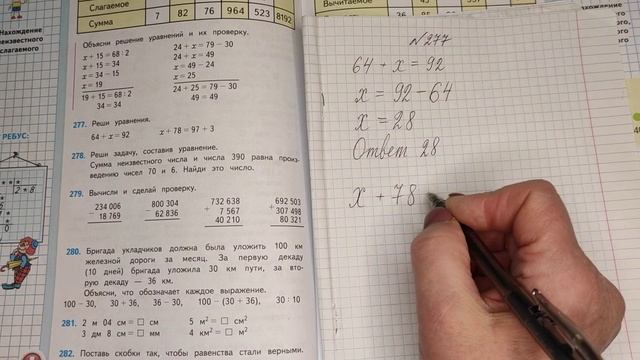 Нахождение
неизвестного
слагаемого
Слагаемое
Сумма 7 82 76 964 523 8192
Вычитаемое
Объясни решение уравнений и их проверку.
x + 15 = 68 : 2
x + 15 = 34
x = 34 – 15
x = 19
19 + 15 = 68 : 2
34 = 34
24 + x = 79 – 30
24 + x = 49
x = 49 – 24
x = 25
24 + 25 = 79 – 30
49 = 49
277. Реши уравнения.
64 + x = 92 x + 78 = 97 + 3
278. Реши задачу, составив уравнение.
Сумма неизвестного числа и числа 390 равна произ-
ведению чисел 70 и 6. Найди это число.
279. Вычисли и сделай проверку.
– 234 006
18 769
– 800 304
62 836
+ 732 638
7 567
40 210
+ 692 503
307 498
80 321
РЕБУС:
280. Бригада укладчиков должна была уложить 100 км
железной дороги за месяц. За первую декаду
(10 дней) бригада уложила 30 км пути, за вто-
рую декаду — 36 км.
Объясни, что обозначает каждое выражение.
100 – 30, 30 + 36, 36 – 30, 100 – (30 + 36), 30 : 10
281. 2 м 04 см = □ см 5 м² = □ см²
3 дм 8 см = □ мм 4 км² = □ м²
282. Поставь скобки так, чтобы равенства стали верными.
N 277
64 + x = 92
x = 92 – 64
x = 28
Ответ 28
x + 78